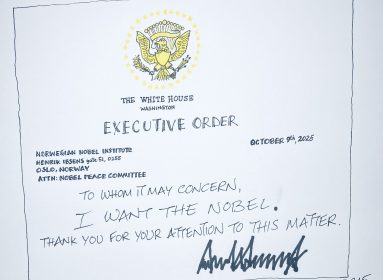 THE WHITE HOUSE
WASHINGTON
EXECUTIVE ORDER
OCTOBER 9th, 2025
NORWEGIAN NOBEL INSTITUTE
HENRIK IBSENS gate 51, 0255
OSLO, NORWAY
ATTN: NOBEL PEACE COMMITTEE
TO WHOM IT MAY CONCERN,
I WANT THE NOBEL.
THANK YOU FOR YOUR ATTENTION TO THIS MATTER.